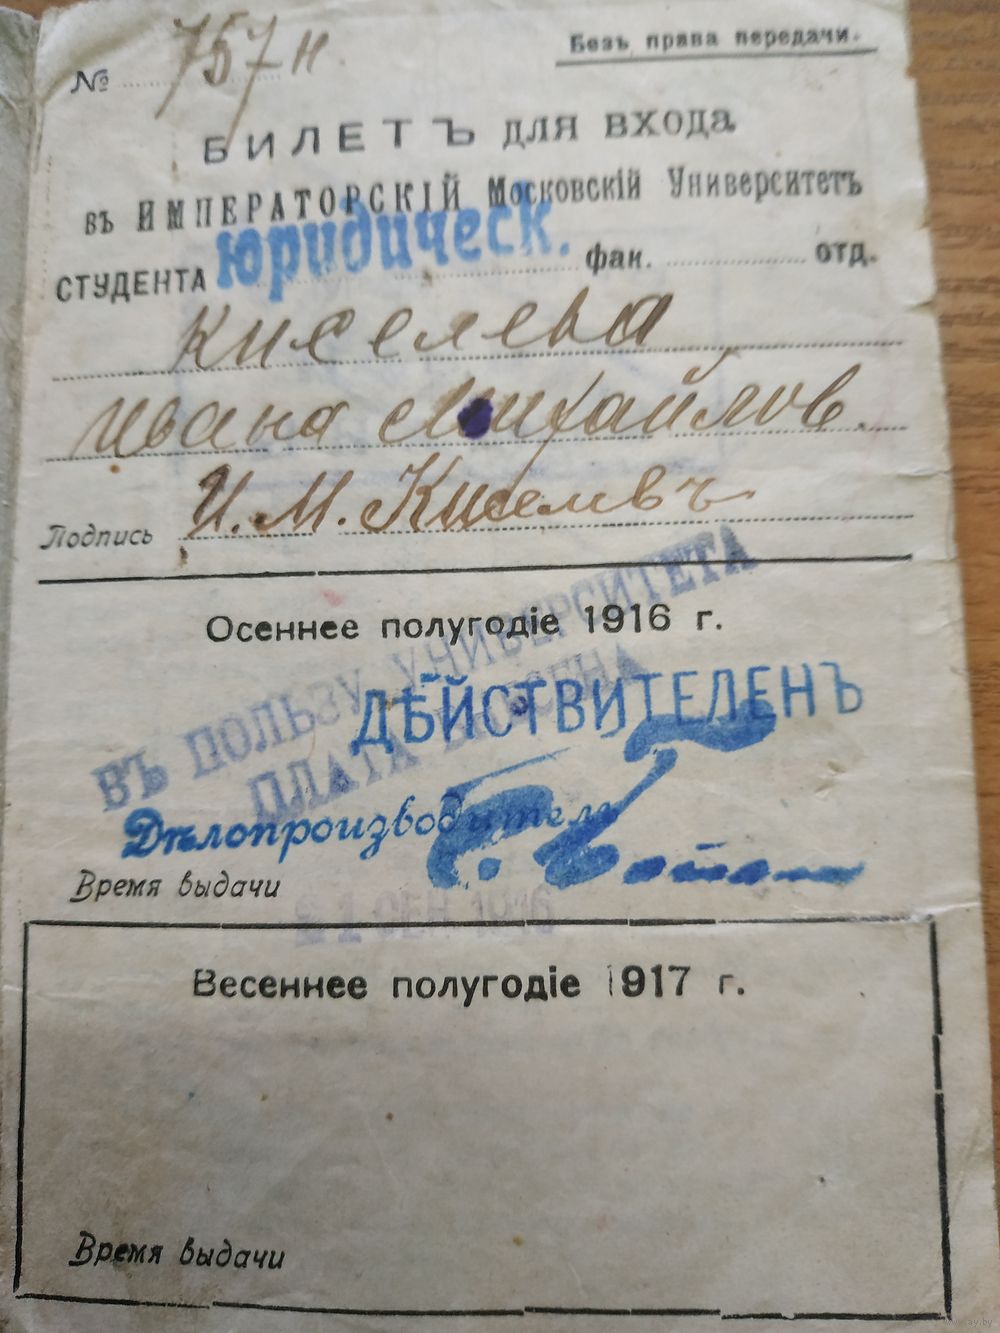 № 757 н.
Безъ права передачи.
БИЛЕТЪ для входа
въ ИМПЕРАТОРСКІЙ Московскій Университетъ
СТУДЕНТА юридическ. фак. отд.
Киселева
Ивана Михайлов.
Подпись И. М. Киселевъ
Осеннее полугодіе 1916 г.
ВЪ ПОЛЬЗУ УНИВЕРСИТЕТА
ПЛАТА ВНЕСЕНА
ДѢЙСТВИТЕЛЕНЪ
Дѣлопроизводитель
Время выдачи
21 СЕН 1916
Весеннее полугодіе 1917 г.
Время выдачи